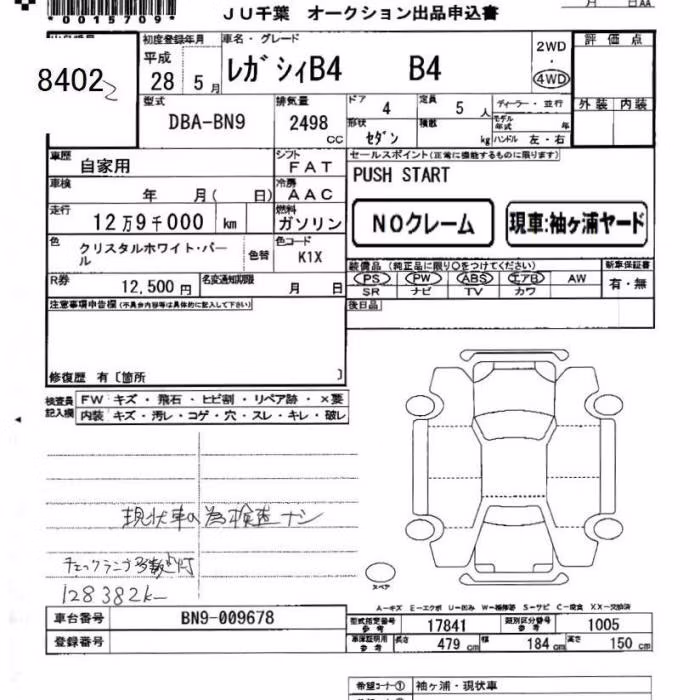 *0015709*
月 日AA
JU千葉 オークション出品申込書
出品番号 初度登録年月 車名・グレード 2WD ・ 4WD 評価点
8402
平成 28 5月 ﾚｶﾞｼｨB4 B4
外装 内装
型式 DBA-BN9 排気量 2498 CC
ドア 4 定員 5 人 ディーラー・並行
形状 ｾﾀﾞﾝ 積数 kg モデル年式 年
ハンドル 左・右
車歴 自家用 シフト FAT
セールスポイント(正常に機能するものに限ります)
PUSH START
車検 年 月( 日) 冷房 AAC
走行 12万9千000 km 燃料 ガソリン
NOクレーム 現車:袖ヶ浦ヤード
色 クリスタルホワイト・パール 色替 色コード K1X
装備品(純正品に限り○をつけてください) 新車保証書
PS PW ABS エアB AW 有・無
SR ナビ TV カワ
R券 12,500円 名変通知期限 月 日
後日品
注意事項申告欄(不具合内容等は具体的に記入して下さい)
修復歴 有〔箇所 〕
検査員記入欄 FW キズ・飛石・ヒビ割・リペア跡・×要
内装 キズ・汚レ・コゲ・穴・スレ・キレ・破レ
現状車の為検査ナシ
チェックランプ多数点灯
128382K
スペア
A-キズ E-エクボ U-凹ミ W-補修跡 S-サビ C-腐食 XX-交換済
車台番号 BN9-009678
型式指定番号 参考 17841 類別区分番号 参考 1005
登録番号
車庫証明用 参考 長さ 479 cm 幅 184 cm 高さ 150 cm
希望コーナー① 袖ヶ浦・現状車